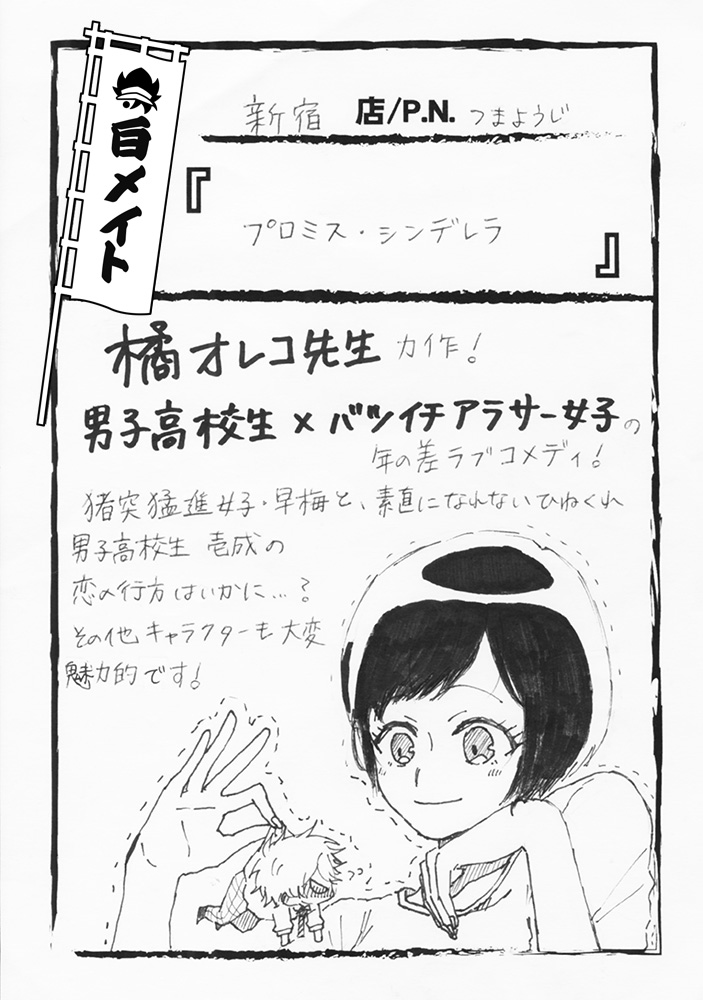 百メイト
新宿 店/P.N. つまようじ
『
プロミス・シンデレラ
』
橘オレコ先生 力作!
男子高校生×バツイチアラサー女子の
年の差ラブコメディ!
猪突猛進女子・早梅と、素直になれないひねくれ
男子高校生 壱成の
恋の行方はいかに…?
その他キャラクターも大変
魅力的です!